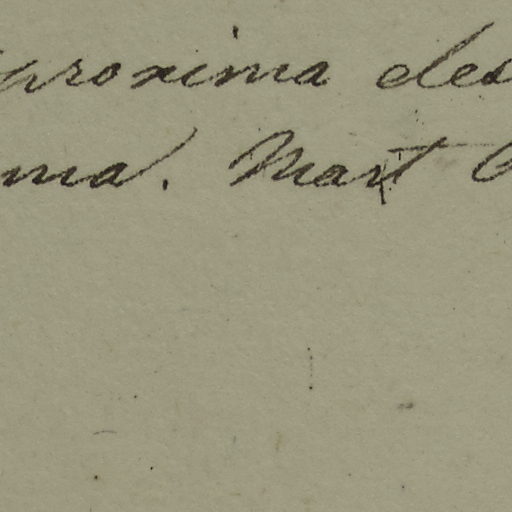 proxima des
ma. Mart